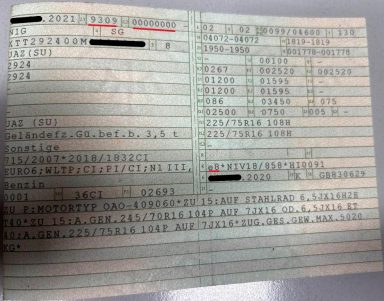 .2021 9309 00000000
02 02 0099/04660 130
N1G SG
04072-0472 1819-1819
XTT292400M 8
1950-1950 001778-001778
UAZ(SU)
00100
2924
0267 002520 002520
2924
01200 01595
01200 01595
086 03450 075
02500 0750 005
UAZ(SU)
225/75R16 108H
Geländefz.Gü.bef.b.3,5 t
225/75R16 108H
Sonstige
715/2007*2018/1832CI
EURO6;WLTP;CI/PI/CI;N1 III,
e8*NIV18/858*HI0091
Benzin
.2020 K GB830629
0001 36CI 02693
ZU P:MOTORTYP OAO-409060*ZU 15:AUF STAHLRAD 6,5JX16H2H
ET40*ZU 15:A.GEN.245/70R16 104P AUF 7JX16 OD.6,5JX16 ET
40;A.GEN.225/75R16 104P AUF 7JX16*ZUG.GES.GEW.MAX.5020
KG*